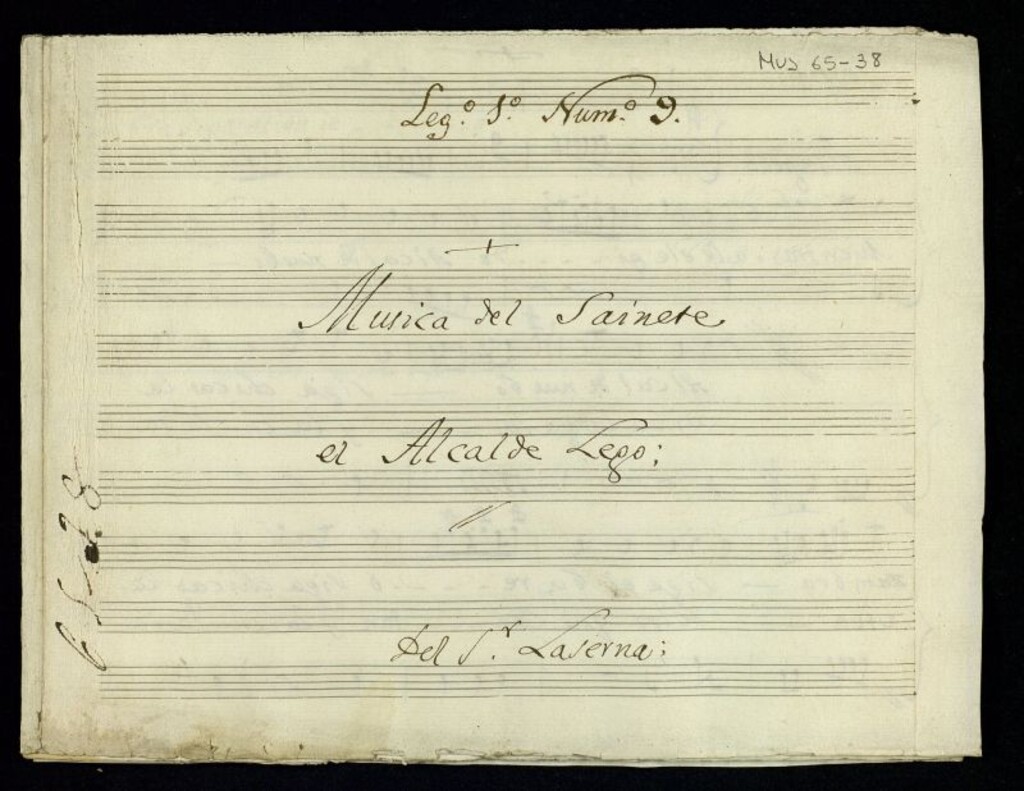 MUS 65-38
Leg.º 1.º Num.º 9.
Musica del Sainete
el Alcalde Lego;
Del S.r Laserna;